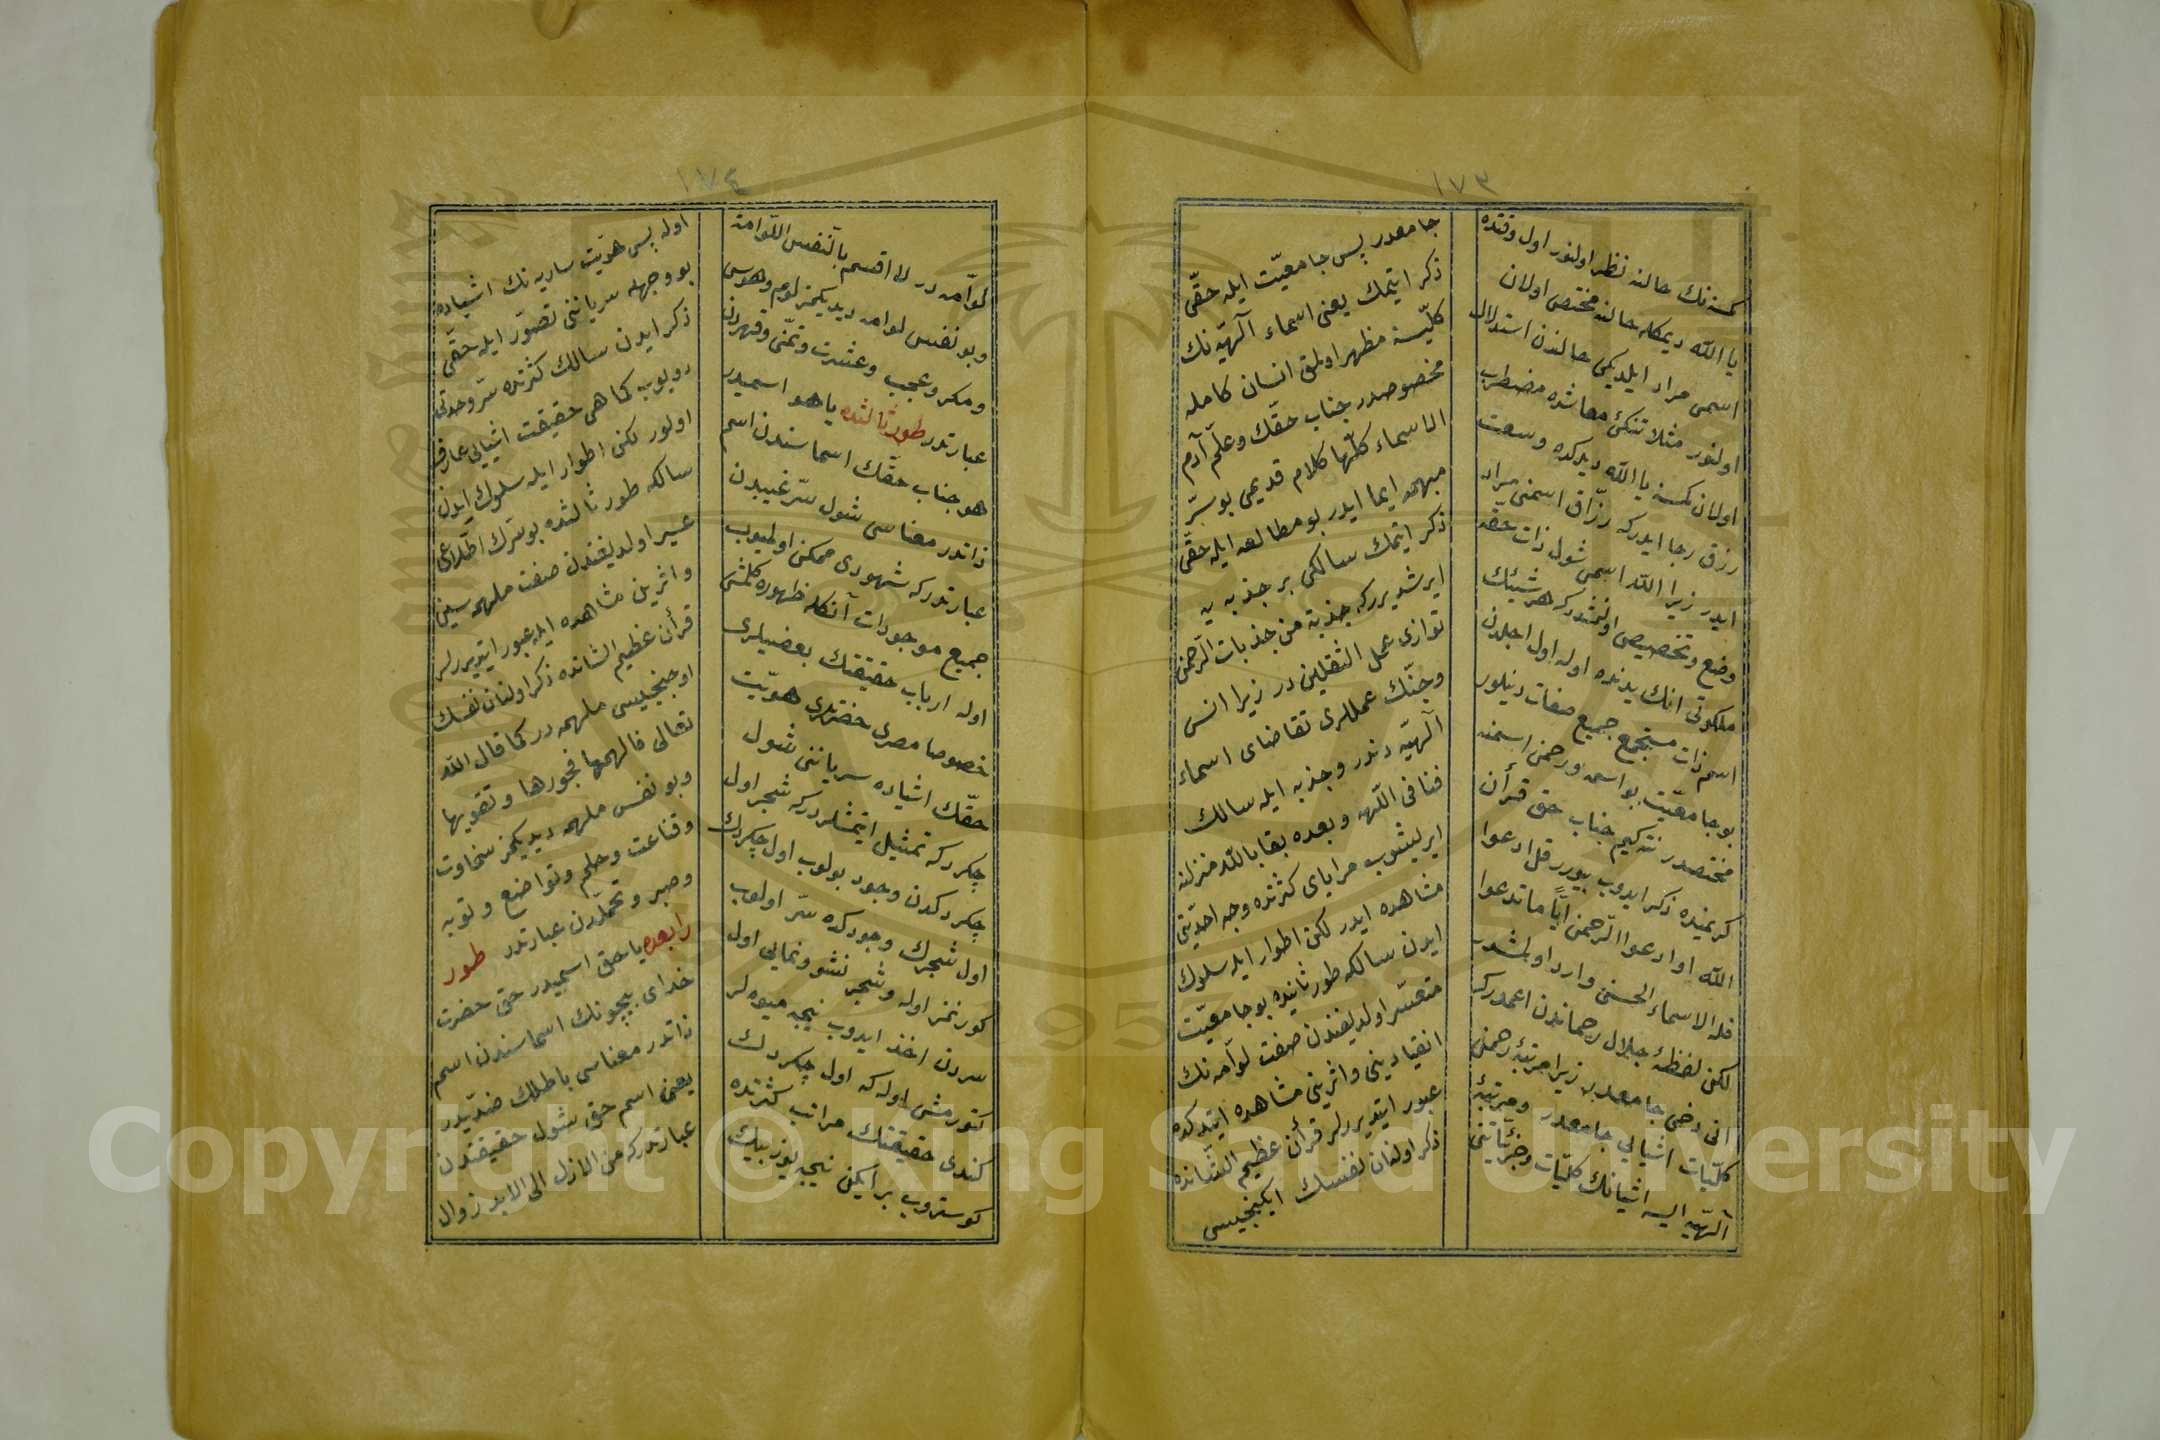 ١٧٣
كمسنه‌نك حالنه نظر اولنور اول وقتده
يا الله ديمكله حالنه مختص اولان
اسمى مراد ايلديكى حالندن استدلال
اولنور مثلا تنكئ معاشده مضطرب
اولان كمسنه يا الله ديدكده وسعت
رزق رجا ايدركه رزّاق اسمنى مراد
ايدر زيرا الله اسمى شول ذات حقّه
وضع وتخصيص اولنمشدركه هر شيئك
ملكوتى انك يدنده اوله اول اجلدن
اسم ذات مستجمع جميع صفات دنيلور
بو جامعيّت بو اسمه ورحمن اسمنه
مختصدر نته‌كيم جناب حق قرأن
كريمنده ذكر ايدوب بيورر قل ادعوا
الله او ادعوا الرّحمن ايّاً ما تدعوا
فله الاسماء الحسنى وارد اولمشدر
لكن لفظهٔ جلال رحماندن اعمدركه
انى دخى جامعدر زيرا مرتبهٔ رحمن
كلّيات اشيايى جامعدر ومرتبهٔ
آلهيّه ايسه اشيانك كلّيات وجزئيّاتنى
جامعدر پس جامعيّت ايله حقّى
ذكر ايتمك يعنى اسماء آلهيّه نك
كلّيسنه مظهر اولمق انسان كامله
مخصوصدر جناب حقّك وعلّم آدم
الاسماء كلّها كلام قديمى بو سرّ
مبهمه ايما ايدر بو مطالعه ايله حقّى
ذكر ايتمك سالكى بر جذبه يه
ايرشديرركه جذبة من جذبات الرّحمن
توازى عمل الثقلين در زيرا انس
وجنّك عمللرى تقاضاى اسماء
آلهيّه دندر وجذبه ايله سالك
فنا فى اللّهه وبعده بقا بالله منزلنه
ايريشوب مراياى كثرتده وجه احديّتى
مشاهده ايدر لكن اطوار ايله سلوك
ايدن سالكه طور ثانيده بو جامعيّت
متعسّر اولديغندن صفت لوّامه نك
انقيادينى واثرينى مشاهده ايتدكده
عبور ايتديررلر قرأن عظيم الشّانده
ذكر اولنان نفسك ايكنجيسى
١٧٤
لوّامه در لا اقسم بالنّفس اللّوامة
وبو نفس لوامه ديديكمز لوم وهوس
ومكر وعجب وعشرت وتمنّى وقهردن
عبارتدر طور ثالثده يا هو اسميدر
هو جناب حقّك اسماسندن اسم
ذاتدر معناسى شول سرّ غيبدن
عبارتدركه شهودى ممكن اولميوب
جميع موجودات آنكله ظهوره كلمش
اوله ارباب حقيقتك بعضيلرى
خصوصا مصرى حضرتلرى هويّت
حقّك اشياده سرياننى شول
چكردكه تمثيل ايتمشلردركه شجر اول
چكردكدن وجود بولوب اول چكردك
اول شجرك وجودكده سرّ اولوب
كورنمز اوله وشجر نشو ونمايى اول
سردن اخذ ايدوب نيجه ميوه لر
كتورمش اوله كه اول چكردك
كندى حقيقتك مراتب كثرتده
كوستروب بر ايكن نيجه يوز بيك
اوله پس هويّت ساريه نك اشياده
بو وجهله سريانى تصوّر ايله حقّى
ذكر ايدن سالك كثرتده سرّ وحدتى
دويوب كما هى حقيقت اشيايى عارف
اولور لكن اطوار ايله سلوك ايدن
سالكه طور ثالثده بو سرّك اطّلاعى
عسير اولديغندن صفت ملهمه سينى
واثرين مشاهده ايله عبور ايتديررلر
قرأن عظيم الشانده ذكر اولنان نفسك
اوجنجيسى ملهمه در كما قال الله
تعالى فالهمها فجورها وتقويها
وبو نفس ملهمه ديديكمز سخاوت
وقناعت وحلم وتواضع وتوبه
وصبر وتحمّلدن عبارتدر طور
رابعده يا حق اسميدر حق حضرت
خداى بيچونك اسماسندن اسم
ذاتدر معناسى باطلك ضدّيدر
يعنى اسم حق شول حقيقتدن
عبارتدركه من الازل الى الابد زوال
Copyright © King Saud University